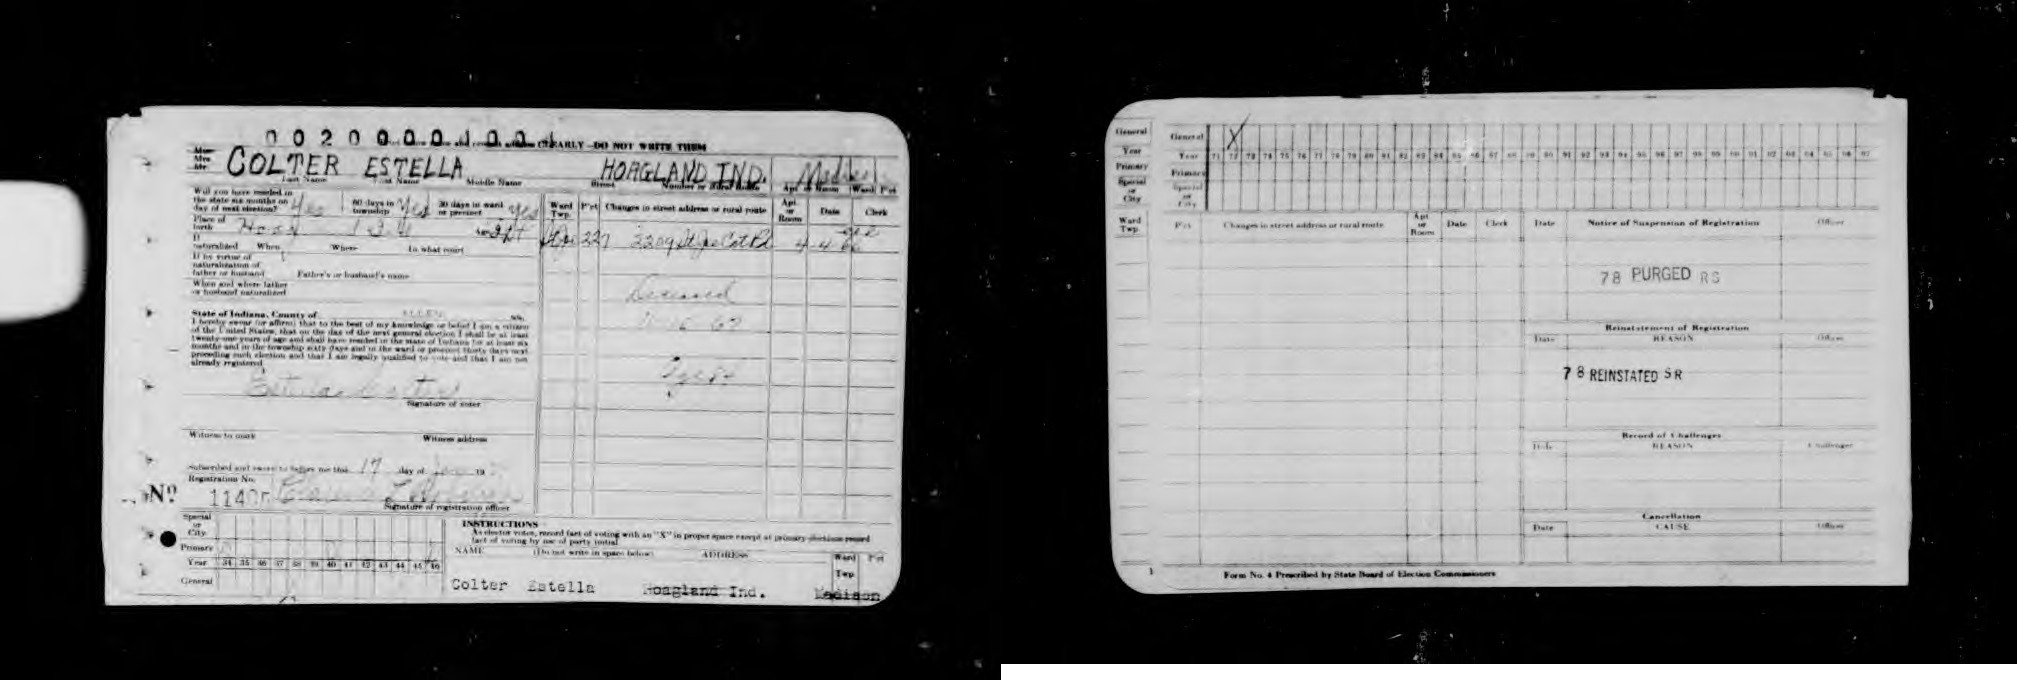 0 0 2 0 0 0 0 1 0 0 CLEARLY - DO NOT WRITE THEM
COLTER ESTELLA HOAGLAND IND.
Last Name First Name Middle Name Street Number or Rural Route Apt. or Room Ward P'ct
Will you have resided in the state six months on day of next election? Yes 60 days in township Yes 30 days in ward or precinct Yes
Ward Twp. P'ct Changes in street address or rural route Apt. or Room Date Clerk
Place of birth
227 2209 St Joe Ct Rd 4-4-66
If naturalized When Where In what court
If by virtue of naturalization of father or husband Father's or husband's name
When and where father or husband naturalized
Deceased
State of Indiana, County of ALLEN ss.
I hereby swear (or affirm) that to the best of my knowledge or belief I am a citizen
of the United States, that on the day of the next general election I shall be at least
twenty-one years of age and shall have resided in the state of Indiana for at least six
months and in the township sixty days and in the ward or precinct thirty days next
preceding such election and that I am legally qualified to vote and that I am not
already registered
Age 84
Signature of voter
Witness to mark Witness address
Subscribed and sworn to before me this 17 day of 19
Registration No.
Nº
Signature of registration officer
Special or City
Primary
Year 34 35 36 37 38 39 40 41 42 43 44 45 46
General
INSTRUCTIONS
As elector votes, record fact of voting with an "X" in proper space except at primary elections record
fact of voting by use of party initial
NAME (Do not write in space below) ADDRESS Ward Twp P'ct
Colter Estella Hoagland Ind. Madison
General General X
Year Year 71 72 73 74 75 76 77 78 79 80 81 82 83 84 85 86 87 88 89 90 91 92 93 94 95 96 97 98 99 00 01 02 03 04 05 06 07
Primary Primary
Special or City Special or City
Ward Twp P'ct Changes in street address or rural route Apt. or Room Date Clerk Date Notice of Suspension of Registration Officer
78 PURGED RS
Reinstatement of Registration
Date REASON Officer
78 REINSTATED SR
Record of Challenges
Date REASON Challenger
Cancellation
Date CAUSE Officer
1 Form No. 4 Prescribed by State Board of Election Commissioners